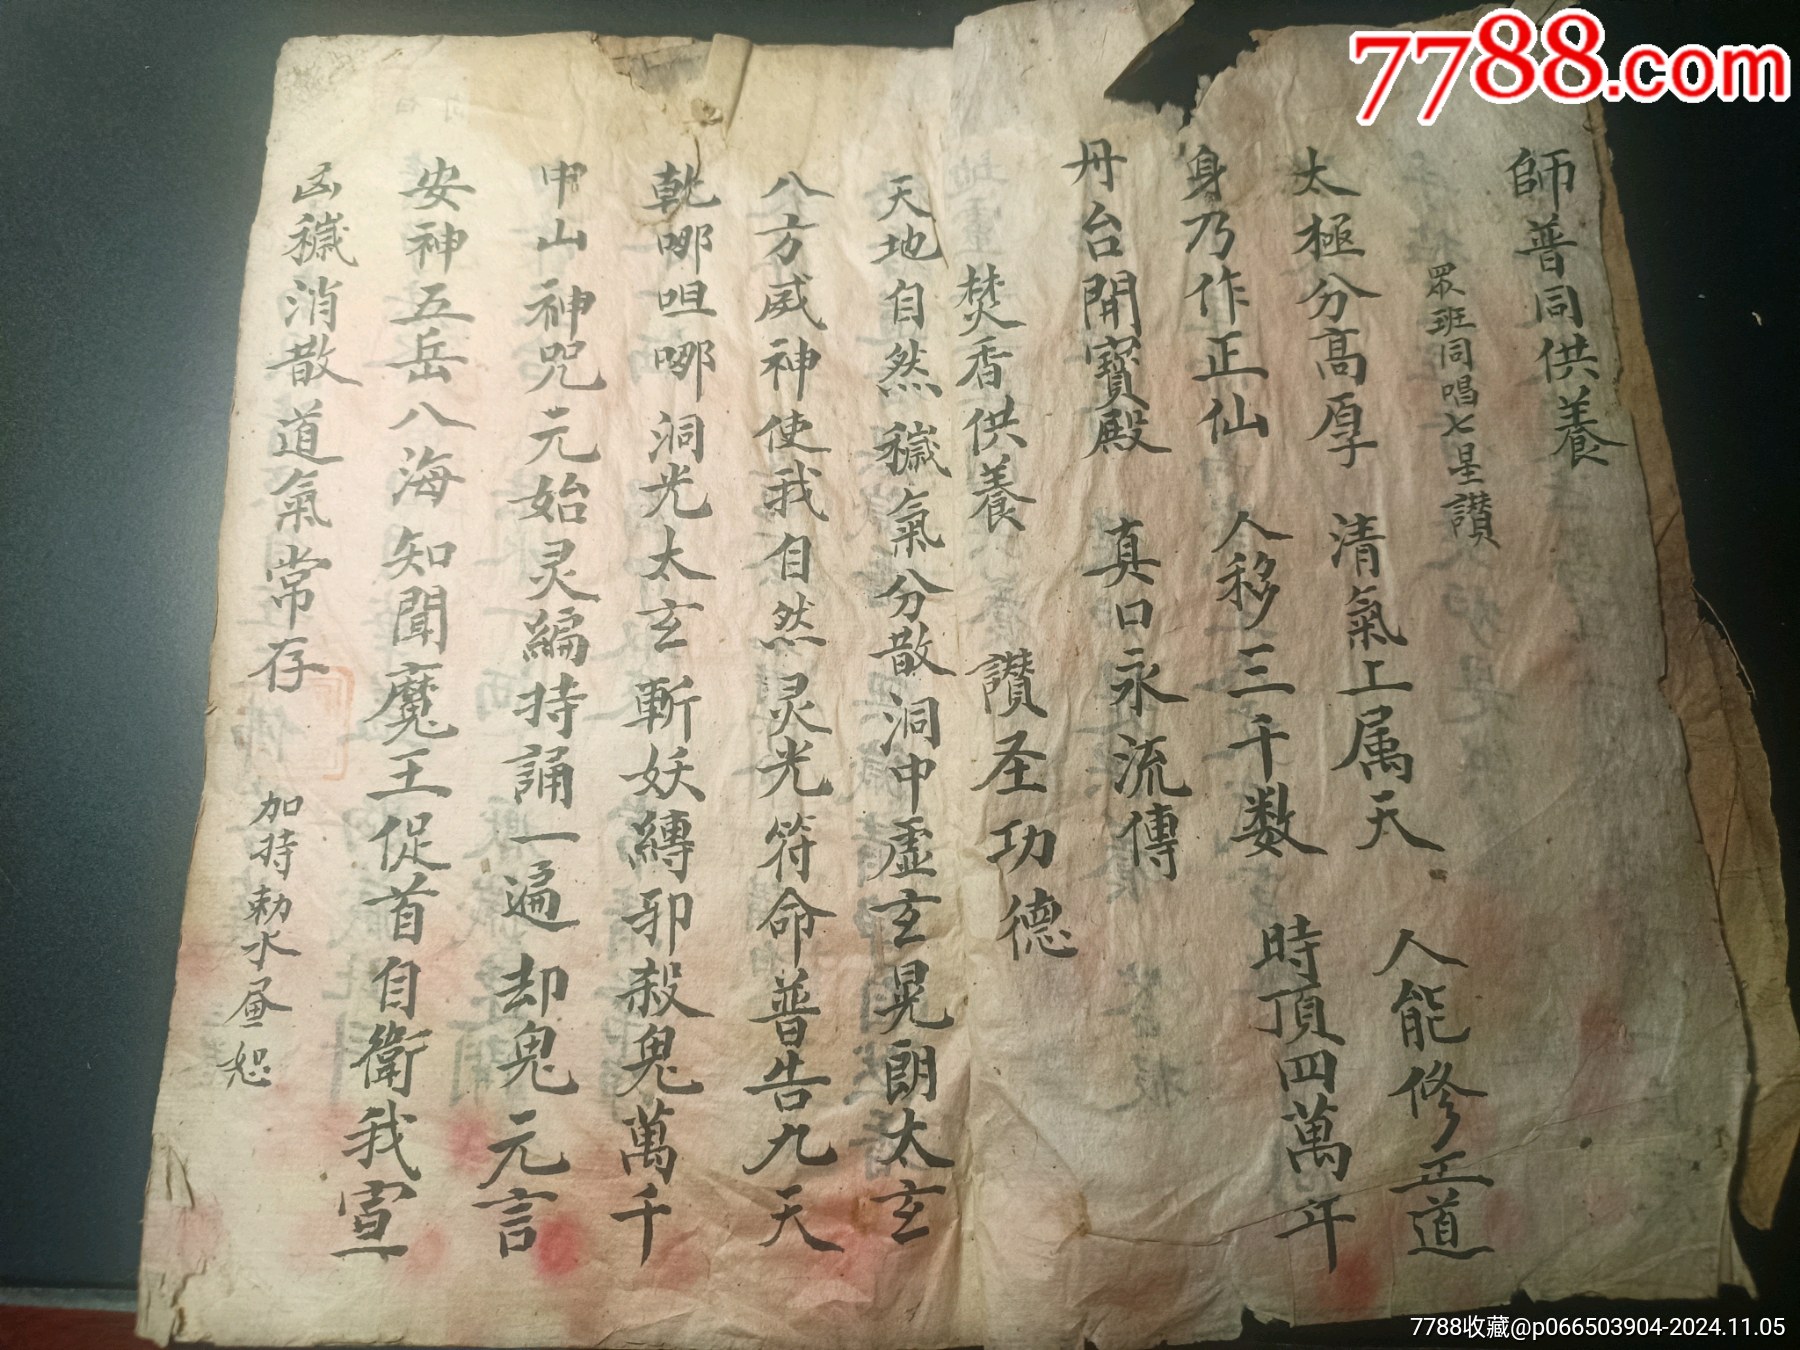 師普同供養
眾班同唱七星讚
太極分高厚 清氣上属天 人能修正道
身乃作正仙 人移三千数 時頂四萬年
丹台開寳殿 真口永流傳
焚香供養 讃圣功德
天地自然穢氣分散洞中虛玄晃朗太玄
八方威神使我自然灵光符命普告九天
乹哪呾哪洞光太玄斬妖縛邪殺鬼萬千
中山神咒元始灵編持誦一遍却鬼元言
安神五岳八海知聞魔王促首自衛我宣
凶穢消散道氣常存 加持勅水
7788.com
7788收藏@p066503904-2024.11.05